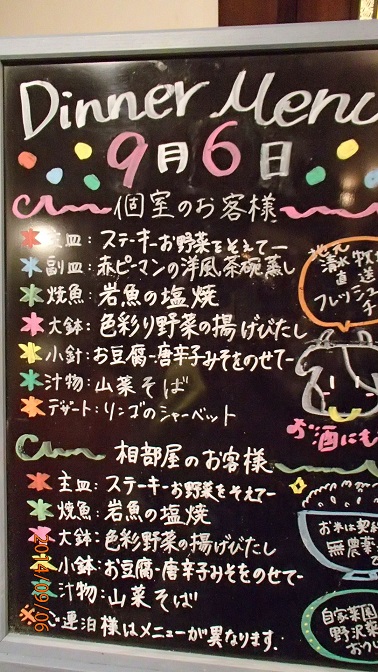 Dinner Menu
9月6日
個室のお客様
主皿：ステーキーお野菜をそえてー
副皿：赤ピーマンの洋風茶碗蒸し
焼魚：岩魚の塩焼
大鉢：色彩り野菜の揚げびたし
小針：お豆腐-唐辛子みそをのせてー
汁物：山菜そば
デザート：リンゴのシャーベット
相部屋のお客様
主皿：ステーキーお野菜をそえてー
焼魚：岩魚の塩焼
大鉢：色彩野菜の揚げびたし
小鉢：お豆腐-唐辛子みそをのせてー
汁物：山菜そば
※連泊様はメニューが異なります.
地元
清水牧
直送
フレッシュ
チ
お酒にも
お米は契
無農薬
自家菜園
野沢菜
おかし
2014/09/06